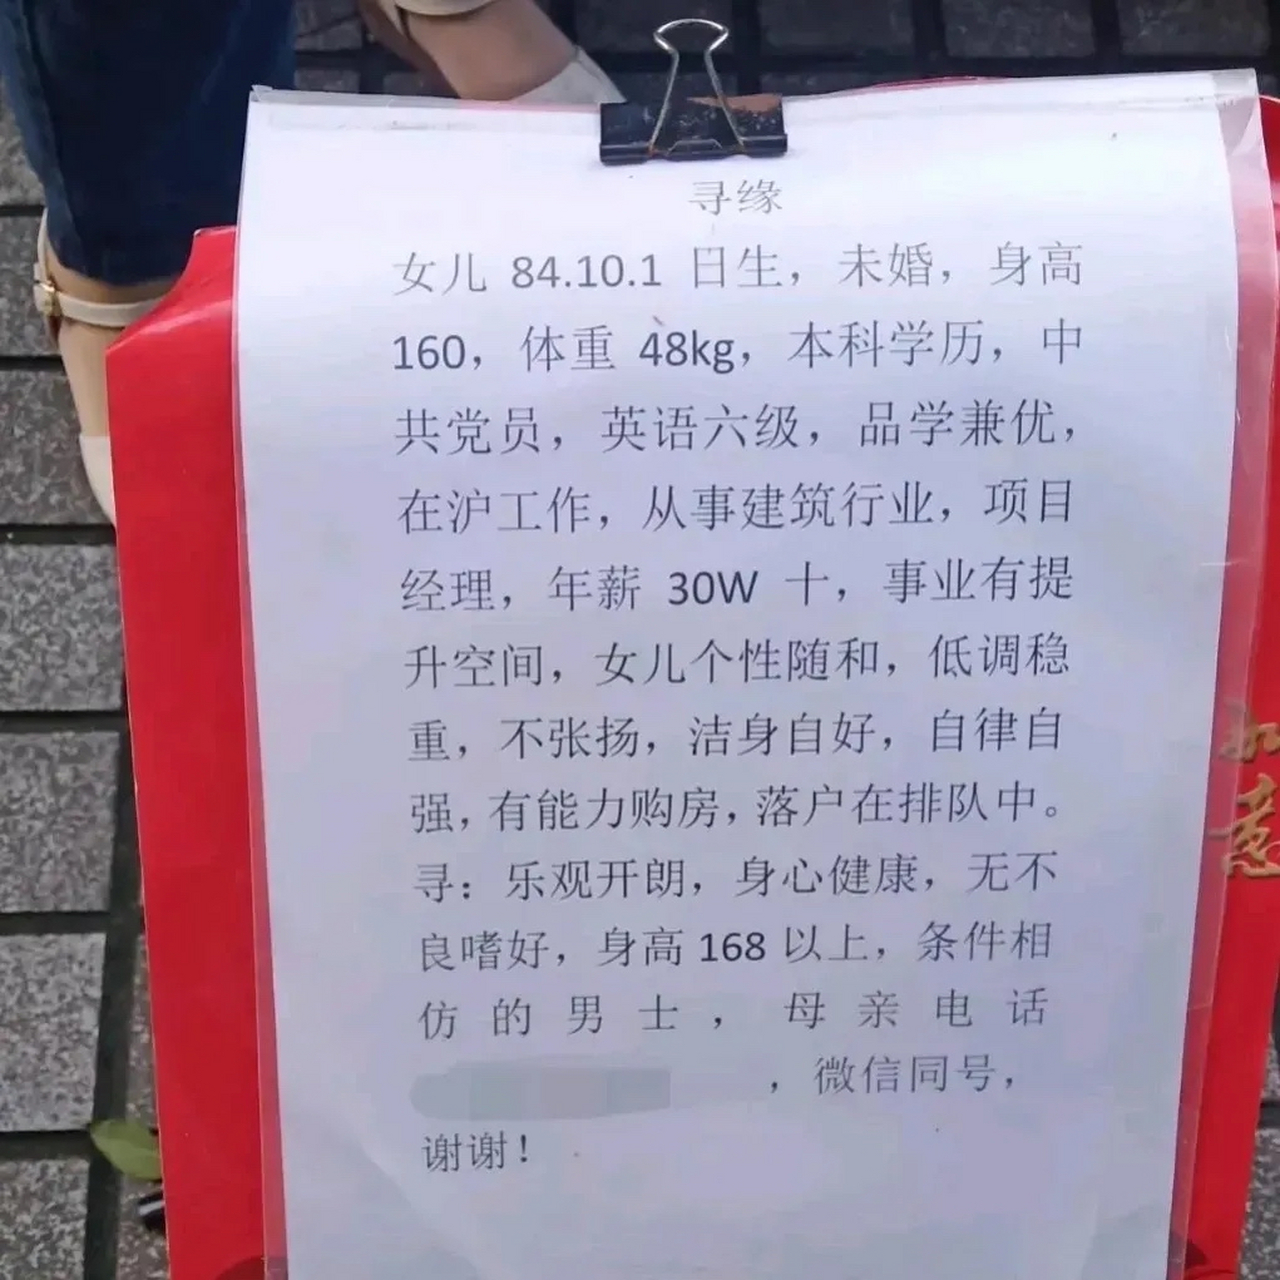 寻缘
女儿 84.10.1 日生，未婚，身高
160，体重 48kg，本科学历，中
共党员，英语六级，品学兼优，
在沪工作，从事建筑行业，项目
经理，年薪 30W 十，事业有提
升空间，女儿个性随和，低调稳
重，不张扬，洁身自好，自律自
强，有能力购房，落户在排队中。
寻：乐观开朗，身心健康，无不
良嗜好，身高 168 以上，条件相
仿的男士，母亲电话
，微信同号，
谢谢！
如
意